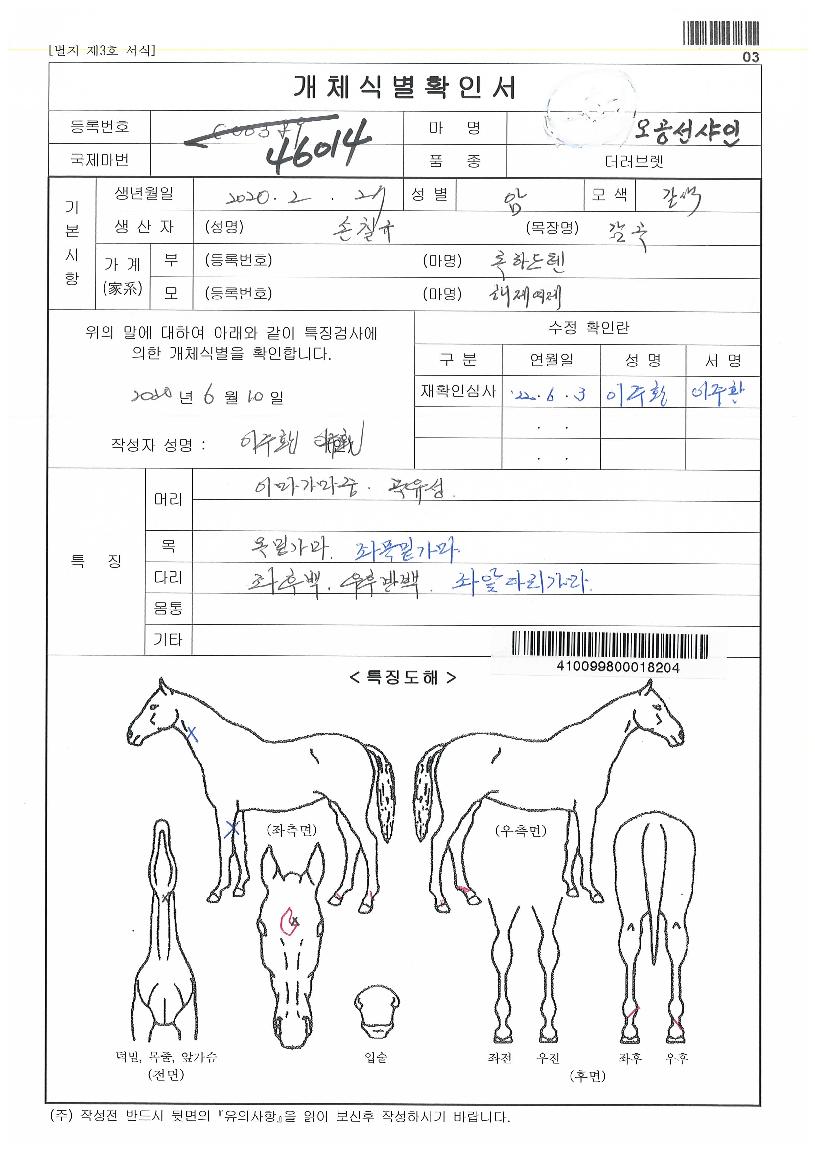 [번지 제3호 서식]
03
개체식별확인서
등록번호 46014 마 명 오공선샤인
국제마번 품 종 더러브렛
기본사항
생년월일 2020. 2 . 29 성 별 암 모 색 갈색
생 산 자 (성명) 손칠규 (목장명) 감곡
가 계 (家系) 부 (등록번호) (마명) 록하드텐
모 (등록번호) (마명) 해제여제
위의 말에 대하여 아래와 같이 특징검사에
의한 개체식별을 확인합니다.
2020 년 6 월 10 일
작성자 성명 : 이주환
수정 확인란
구 분 연월일 성 명 서 명
재확인심사 '22. 6 . 3 이주환 이주환
. .
. .
특 징
머리 이마가마중. 곡유성.
목 목밑가마. 좌목밑가마.
다리 좌후백. 우후반백. 좌앞다리가마.
몸통
기타
410099800018204
< 특징도해 >
(좌측면) (우측면)
턱밑, 목줄, 앞가슴
(전면)
입술
좌전 우전 좌후 우후
(후면)
(주) 작성전 반드시 뒷면의 『유의사항』을 읽어 보신후 작성하시기 바랍니다.